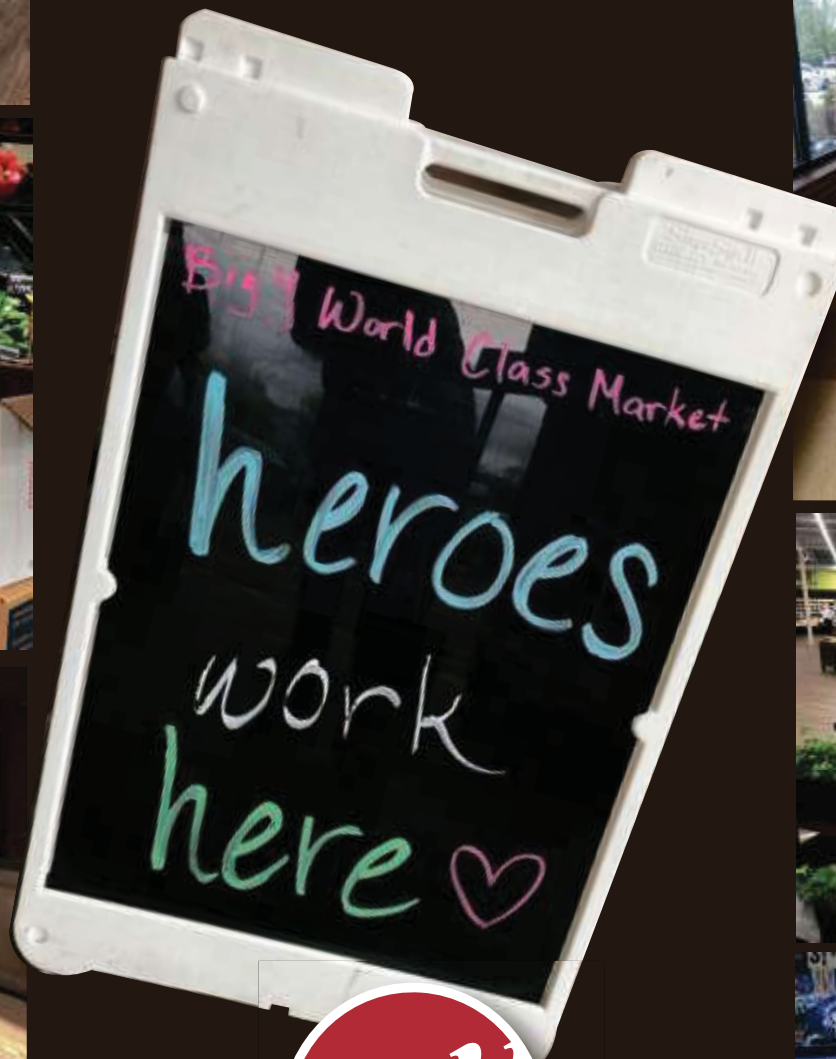 Big Y World Class Market
heroes
work
here